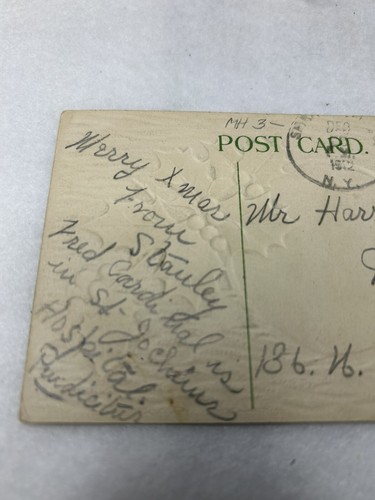 MH 3-
POST CARD.
DEC
1912
N. Y.
Merry Xmas
From
Stanley
Fred Cardidal is
in St. Jochims
Hospital.
Mr Harr
186. N.